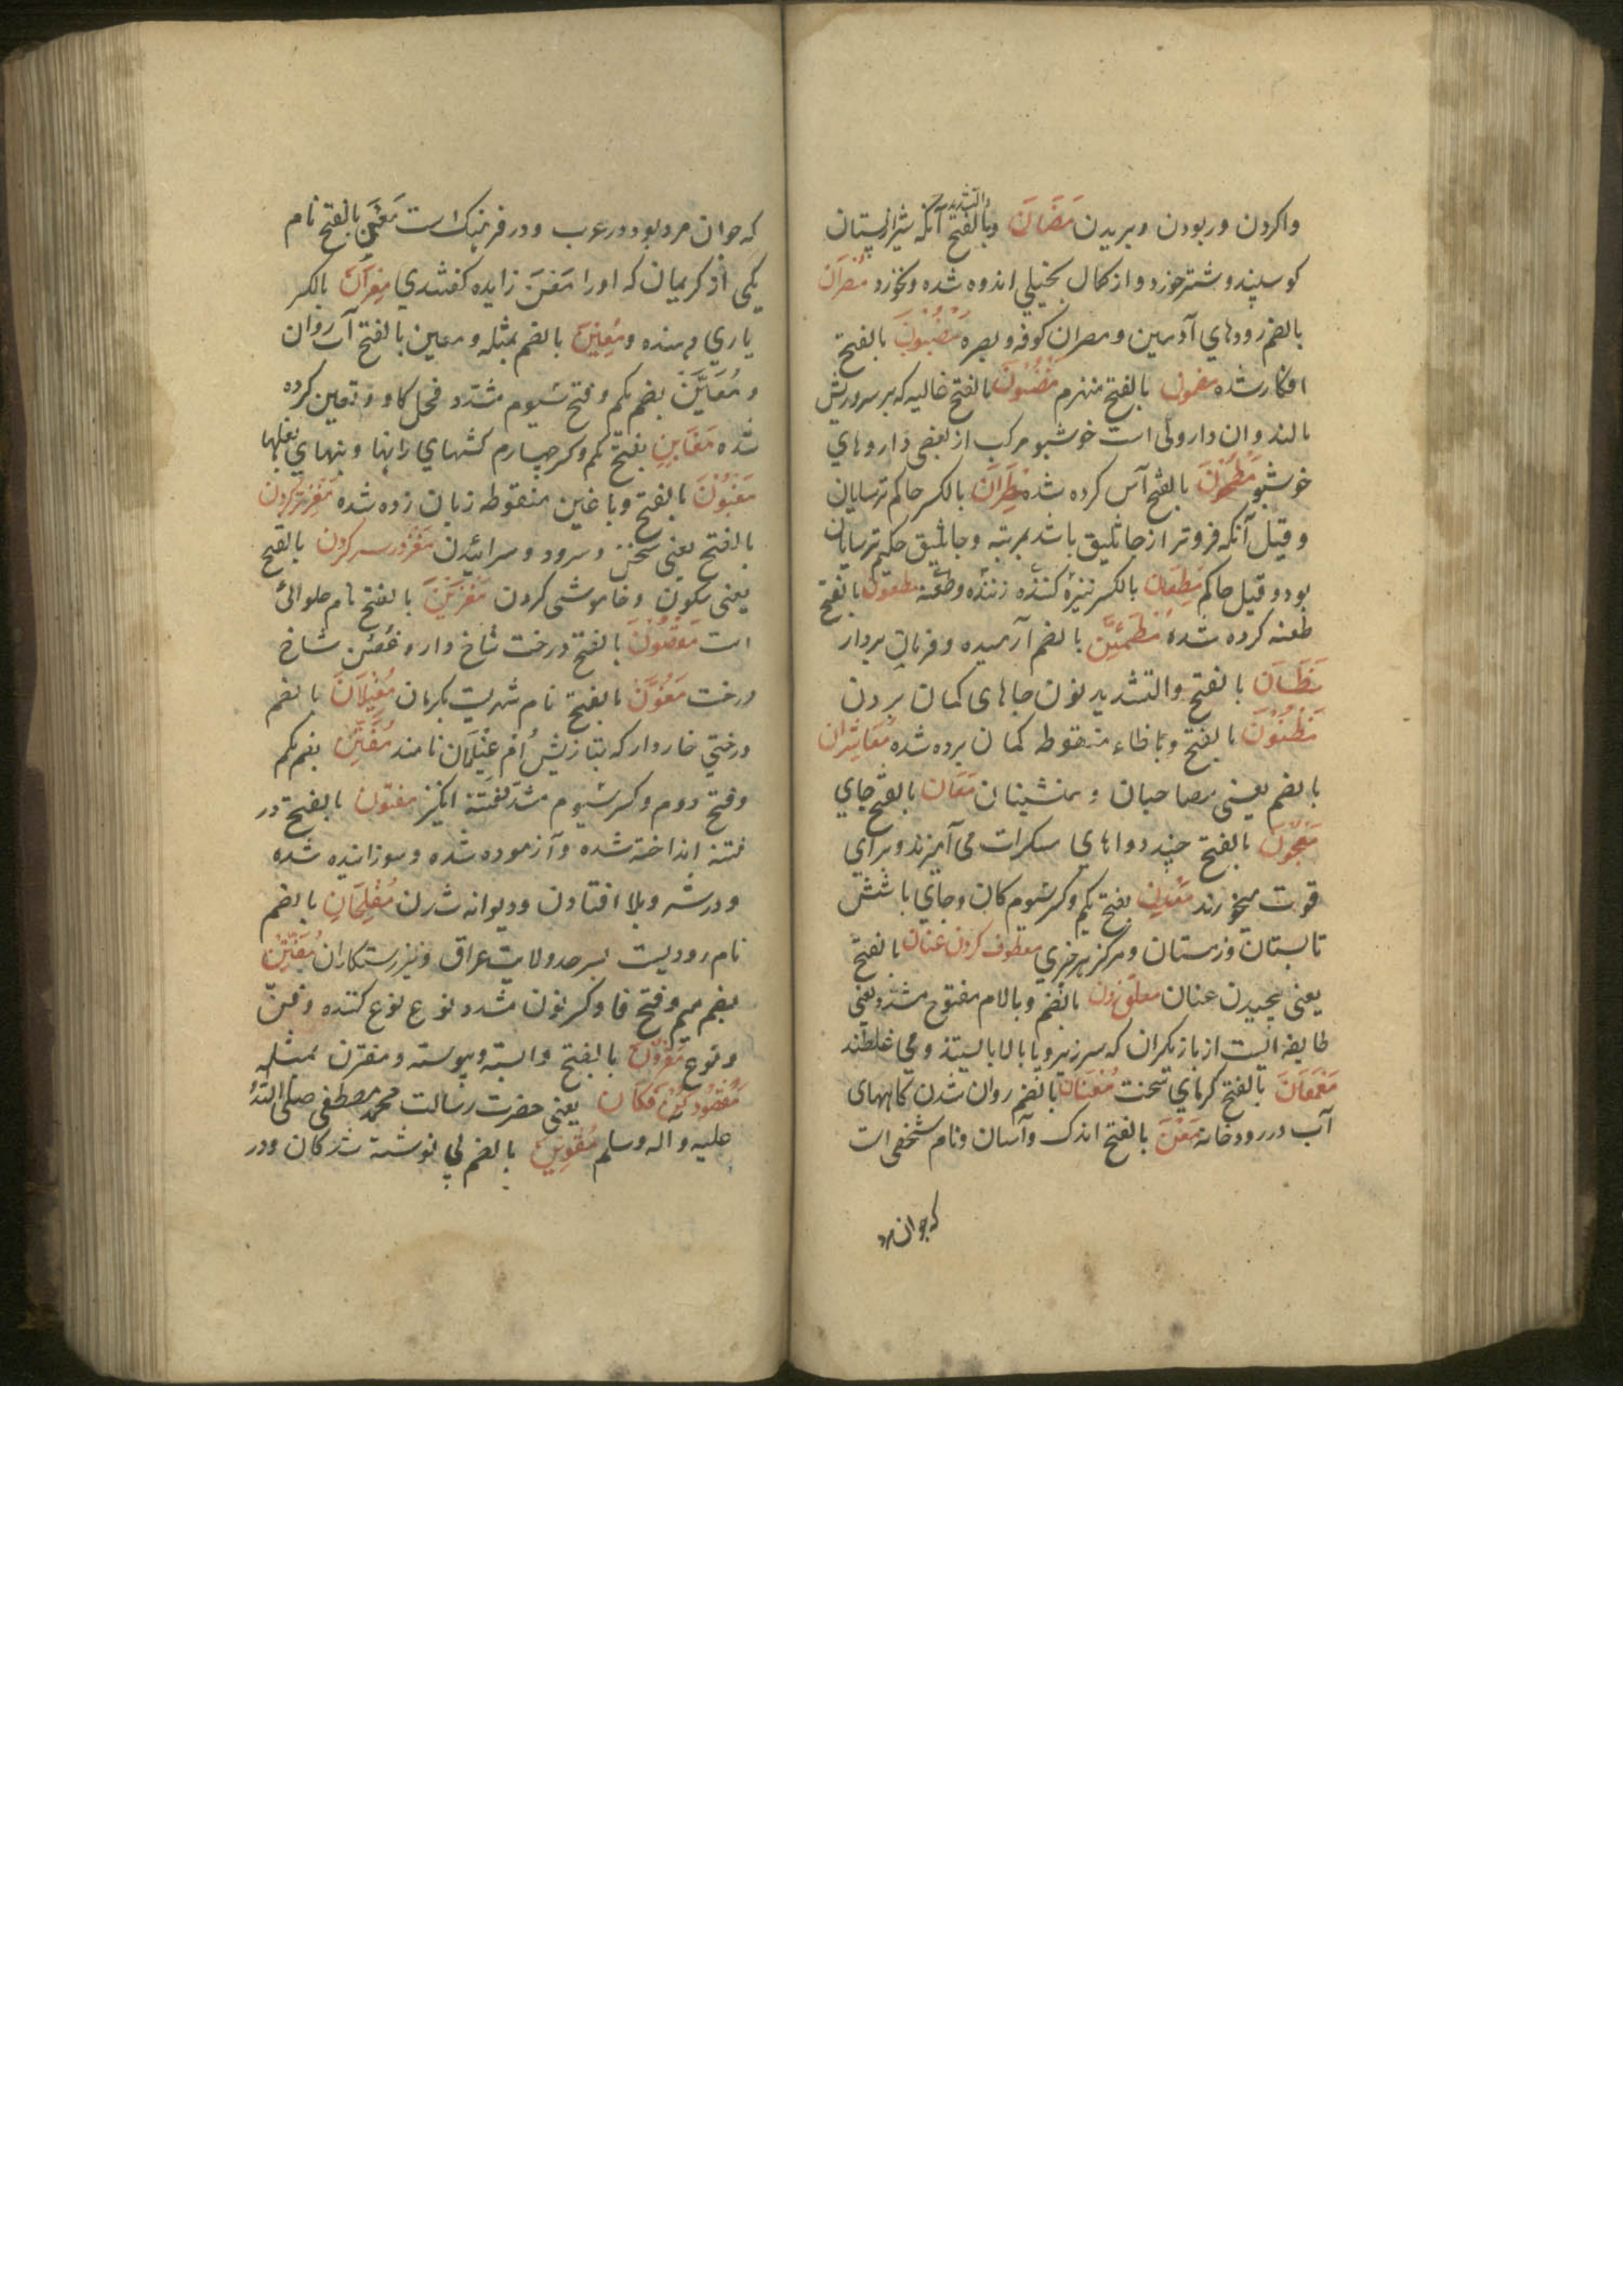 واکردن و ربودن و بریدن مَصَّانَ و بالفتح والتشدید آنکه شیر از پستان
کوسپند و شتر خورد و از کمال بخیلی اندوه شده و نخورد مُصرَان
بالضم رودهای آدمین و مصران کوفه و بصره بالفتح
افکار شده بالفتح منهزم بالفتح غالیه که بر سر و ریش
مالند و ان داروئی است خوشبو مرکب از بعضی داروهای
خوشبو مَطْحُونَ بالفتح آس کرده شده مِطَرَانَ بالکسر حاکم ترسایان
و قیل آنکه فروتر از جاثلیق باشد بمرتبه و جاثلیق حکیم ترسایان
بود و قیل حاکم مِطعَان بالکسر نیزه کننده زننده و طعنه مطعون بالفتح
طعنه کرده شده مُطمَئِنَّ بالضم آرمیده و فرمان بردار
مَظَان بالفتح والتشدید نون جاهای کمان بردن
مَظْنُوْنَ بالفتح و با ظاء منقوطه کمان برده شده مُعَاشِرَان
بالضم یعنی مصاحبان و همنشینان مَعَان بالفتح جای
مَعْجُوْنَ بالفتح چند دواهای سکرات می آمیزند و برای
قوت میخورند مَعْدِن بفتح یکم و کسر سیوم کان و جای باشش
تابستان و زمستان و مرکز هر چیزی معطوف کردن عنان بالفتح
یعنی پیچیدن عنان معلق زدن بالضم و با لام مفتوح مشدد یعنی
طایفه ایست از بازیکران که سر زیر و پا بالا بایستند و می غلطند
مَعْمَعَانَ بالفتح کرمای سخت مُعْنَان بالضم روان شدن کاههای
آب در رودخانه مَعْنَ بالفتح اندک و آسان و نام شخصی است
که جوان مرد
که جوان مرد بود در عرب و در فرهنک است مَعْنَ بالفتح نام
یکی از کریمان که او را مَعْنَ زایده کفتندی بالکسر
یاری دهنده و مُعِیْنَ بالضم بمثله و معین بالفتح آب روان
و مُعَیَّنْ بضم یکم و فتح سیوم مشدد فحل کاو و تعین کرده
شده مَغَابِنِ بفتح یکم و کسر چهارم کشهای رانها و بنهای بغلها
مَغْبُوْنَ بالفتح و با غین منقوطه زیان زده شده مَغْز تر کردن
بالفتح یعنی سخن و سرود و سرائیدن مَغْز در سر کردن بالفتح
یعنی سکون و خاموشی کردن مَغزِیْنَ بالفتح نام حلوائی
است مَغْصُوْنَ بالفتح درخت شاخ دار و غصن شاخ
درخت مَغُوْنَ بالفتح نام شهریست بکرمان مُغِیْلَانَ بالضم
درختی خاردار که بتازیش اُم غَیْلَان نامند مُفَتِّنْ بضم یکم
و فتح دوم و کسر سیوم مشدد فتنه انکیز مفتون بالفتح در
فتنه انداخته شده و آزموده شده و سوزانیده شده
و در شر و بلا افتادن و دیوانه شدن مُفْلِحَانِ بالضم
نام رودیست بسر حد ولایت عراق و نیز رستکاران مُفَنِّنْ
بضم میم و فتح فا و کسر نون مشدد نوع نوع کننده و فن
و نوع مَقْرُوْنَ بالفتح وابسته و پیوسته و مقترن بمثله
مَقْصُود کُنْ فَکَان یعنی حضرت رسالت محمد مصطفی صلی الله
علیه و آله و سلم مُقْوِیْنَ بالضم بی توشته شدکان و در